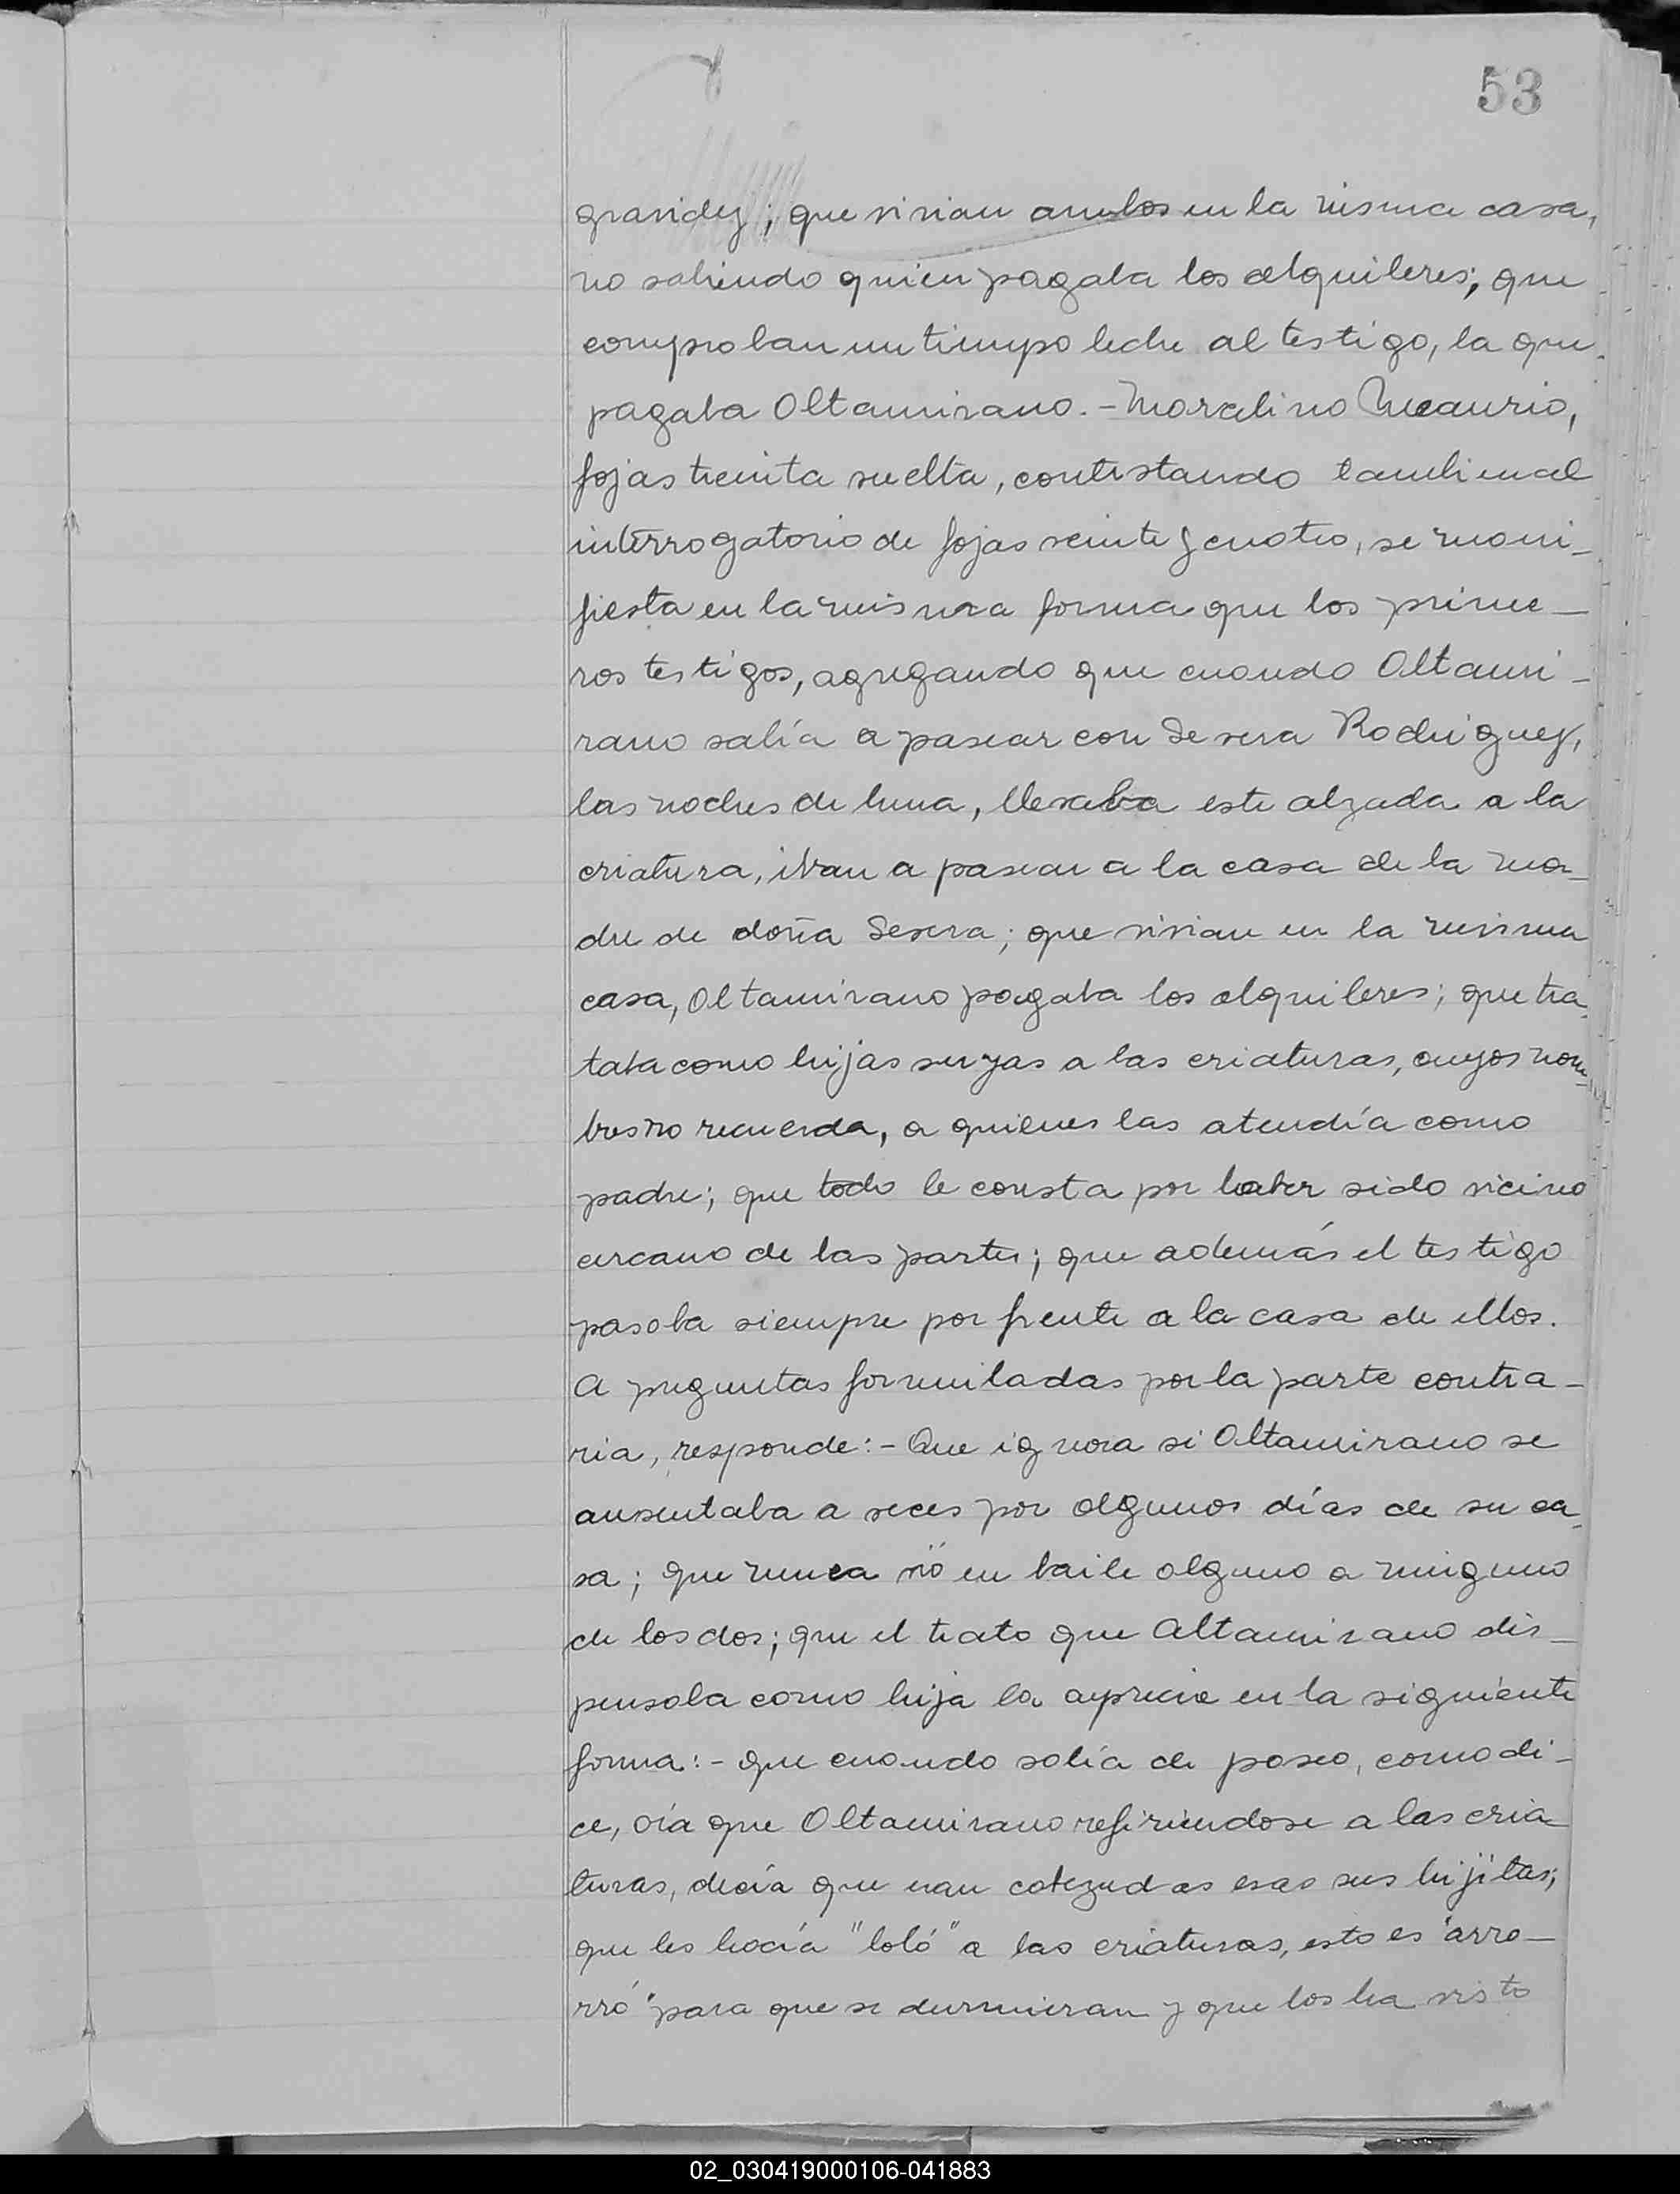 53
gravidez; que vivian ambos en la misma casa,
no sabiendo quien pagaba los alquileres; que
compraban un tiempo leche al testigo, la que
pagaba Altamirano.- Marcelino Mecaurio,
fojas treinta vuelta, contestando tambien al
interrogatorio de fojas veinte y cuatro, se mani-
fiesta en la misma forma que los prime-
ros testigos, agregando que cuando Altami-
rano salía a pasear con Severa Rodriguez,
las noches de luna, llevaba este alzada a la
criatura, iban a pasear a la casa de la ma-
dre de doña Severa; que vivian en la misma
casa, Altamirano pagaba los alquileres; que tra-
taba como hijas suyas a las criaturas, cuyos nom-
bres no recuerda, a quienes las atendía como
padre; que todo le consta por haber sido vecino
cercano de las partes; que además el testigo
pasaba siempre por frente a la casa de ellos.
A preguntas formuladas por la parte contra-
ria, responde:- Que ignora si Altamirano se
ausentaba a veces por algunos días de su ca-
sa; que nunca vió en baile alguno a ninguno
de los dos; que el trato que Altamirano dis-
pensaba como hija la aprecia en la siguiente
forma:- que cuando salía de paseo, como di-
ce, oía que Altamirano refiriendose a las cria-
turas, decía que eran cabezudas esas sus hijitas;
que les hacía "loló" a las criaturas, esto es "arro-
rró" para que se durmieran y que los ha visto
02_030419000106-041883